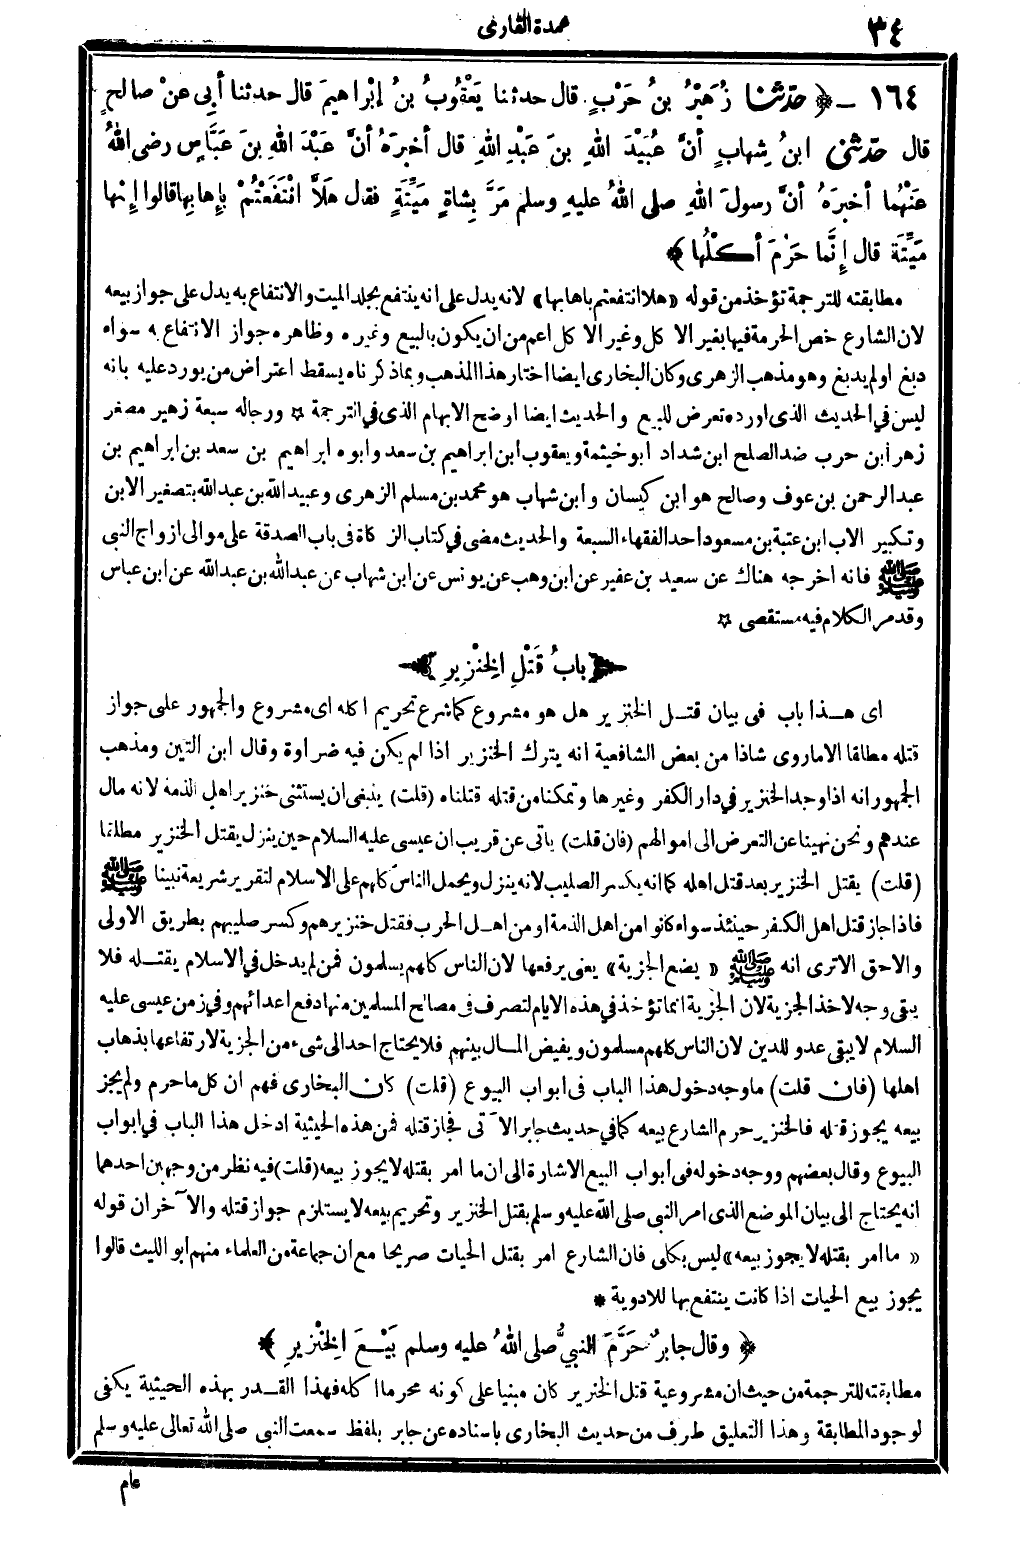 ٣٤
عمدة القارى
١٦٤ ـ ﴿ حَدَّثَنَا زُهَيْرُ بنُ حَرْبٍ قال حدثنا يَعْقُوبُ بنُ إبْرَاهِيمَ قال حدثنا أبِي عنْ صالحٍ
قال حَدَّثَنِي ابنُ شِهابٍ أنَّ عُبَيْدَ اللهِ بنَ عَبْدِ اللهِ قال أخْبَرَهُ أنَّ عَبْدَ اللهِ بنَ عَبَّاسٍ رضى اللهُ
عَنْهُما أخبرَهُ أنَّ رسولَ اللهِ صلى اللهُ عليهِ وسلم مَرَّ بِشاةٍ مَيِّتَةٍ فقال هَلَّا انْتَفَعْتُمْ بِإهابِها قالوا إنَّها
مَيِّتَة قال إنَّما حَرُمَ أكْلُها ﴾
مطابقته للترجمة تؤخذ من قوله «هلا انتفعتم باهابها» لانه يدل على انه ينتفع بجلد الميت والانتفاع به يدل على جواز بيعه
لان الشارع خص الحرمة فيها بغير الاكل وغير الاكل اعم من ان يكون بالبيع وغيره وظاهره جواز الانتفاع به سواء
دبغ اولم يدبغ وهو مذهب الزهرى وكان البخارى ايضا اختار هذا المذهب وبماذ كرناه يسقط اعتراض من يورد عليه بانه
ليس فى الحديث الذى اورده تعرض للبيع والحديث ايضا اوضح الابهام الذى فى الترجمة ☆ ورجاله سبعة زهير مصغر
زهر ابن حرب ضد الصلح ابن شداد ابو خيثمة ويعقوب ابن ابراهيم بن سعد وابوه ابراهيم بن سعد بن ابراهيم بن
عبد الرحمن بن عوف وصالح هو ابن كيسان وابن شهاب هو محمد بن مسلم الزهرى وعبيد الله بن عبد الله بتصغير الابن
وتكبير الاب ابن عتبة بن مسعود احد الفقهاء السبعة والحديث مضى فى كتاب الزكاة فى باب الصدقة على موالى ازواج النبى
ﷺ فانه اخرجه هناك عن سعيد بن عفير عن ابن وهب عن يونس عن ابن شهاب عن عبد الله بن عبد الله عن ابن عباس
وقد مر الكلام فيه مستقصى ☆
﴿ بابُ قَتْلِ الخِنْزِيرِ ﴾
اى هـذا باب فى بيان قتـل الخنزير هل هو مشروع كما شرع تحريم اكله اى مشروع والجمهور على جواز
قتله مطلقا الاماروى شاذا من بعض الشافعية انه يترك الخنزير اذا لم يكن فيه ضراوة وقال ابن التين ومذهب
الجمهور انه اذا وجد الخنزير فى دار الكفر وغيرها وتمكنا من قتله قتلناه (قلت) ينبغى ان يستثنى خنزير اهل الذمة لانه مال
عندهم ونحن نهينا عن التعرض الى اموالهم (فان قلت) ياتى عن قريب ان عيسى عليه السلام حين ينزل يقتل الخنزير مطلقا
(قلت) يقتل الخنزير بعد قتل اهله كما انه يكسر الصليب لانه ينزل ويحمل الناس كلهم على الاسلام لتقرير شريعة نبينا ﷺ
فاذا جاز قتل اهل الكفر حينئذ سواء كانوا من اهل الذمة او من اهـل الحرب فقتل خنزيرهم وكسر صليبهم بطريق الاولى
والاحق الاترى انه ﷺ « يضع الجزية » يعنى يرفعها لان الناس كلهم يسلمون فمن لم يدخل فى الاسلام يقتـله فلا
يبقى وجه لاخذ الجزية لان الجزية انما تؤخذ فى هذه الايام لتصرف فى مصالح المسلمين منها دفع اعدائهم وفى زمن عيسى عليه
السلام لا يبقى عدو للدين لان الناس كلهم مسلمون ويفيض المـال بينهم فلا يحتاج احد الى شىء من الجزية لارتفاعها بذهاب
اهلها (فان قلت) ما وجه دخول هذا الباب فى ابواب البيوع (قلت) كان البخارى فهم ان كل ما حرم ولم يجز
بيعه يجوز قتله فالخنزير حرم الشارع بيعه كما فى حديث جابر الآتى فجاز قتله فمن هذه الحيثية ادخل هذا الباب فى ابواب
البيوع وقال بعضهم ووجه دخوله فى ابواب البيع الاشارة الى ان ما امر بقتله لا يجوز بيعه (قلت) فيه نظر من وجهين احدهما
انه يحتاج الى بيان الموضع الذى امر النبى صلى الله عليه وسلم بقتل الخنزير وتحريم بيعه لا يستلزم جواز قتله والآخر ان قوله
« ما امر بقتله لا يجوز بيعه» ليس بكلى فان الشارع امر بقتل الحيات صريحا مع ان جماعة من العلماء منهم ابو الليث قالوا
يجوز بيع الحيات اذا كانت ينتفع بها للادوية *
﴿ وقال جابرٌ حَرَّمَ النبيُّ صلى اللهُ عليه وسلم بَيْـعَ الخِنْزِيرِ ﴾
مطابقته للترجمة من حيث ان مشروعية قتل الخنزير كان مبنيا على كونه محرما اكله فهذا القـدر بهذه الحيثية يكفى
لوجود المطابقة وهذا التعليق طرف من حديث البخارى باسناده عن جابر بلفظ سمعت النبى صلى الله تعالى عليه وسلم
عام